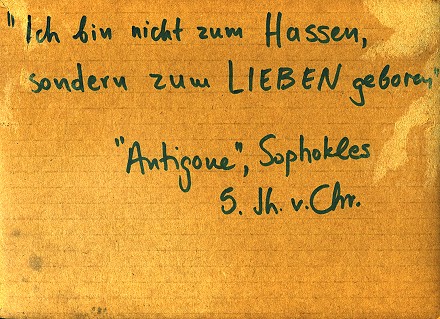 "Ich bin nicht zum Hassen,
sondern zum LIEBEN geboren"
"Antigone", Sophokles
5. Jh. v. Chr.